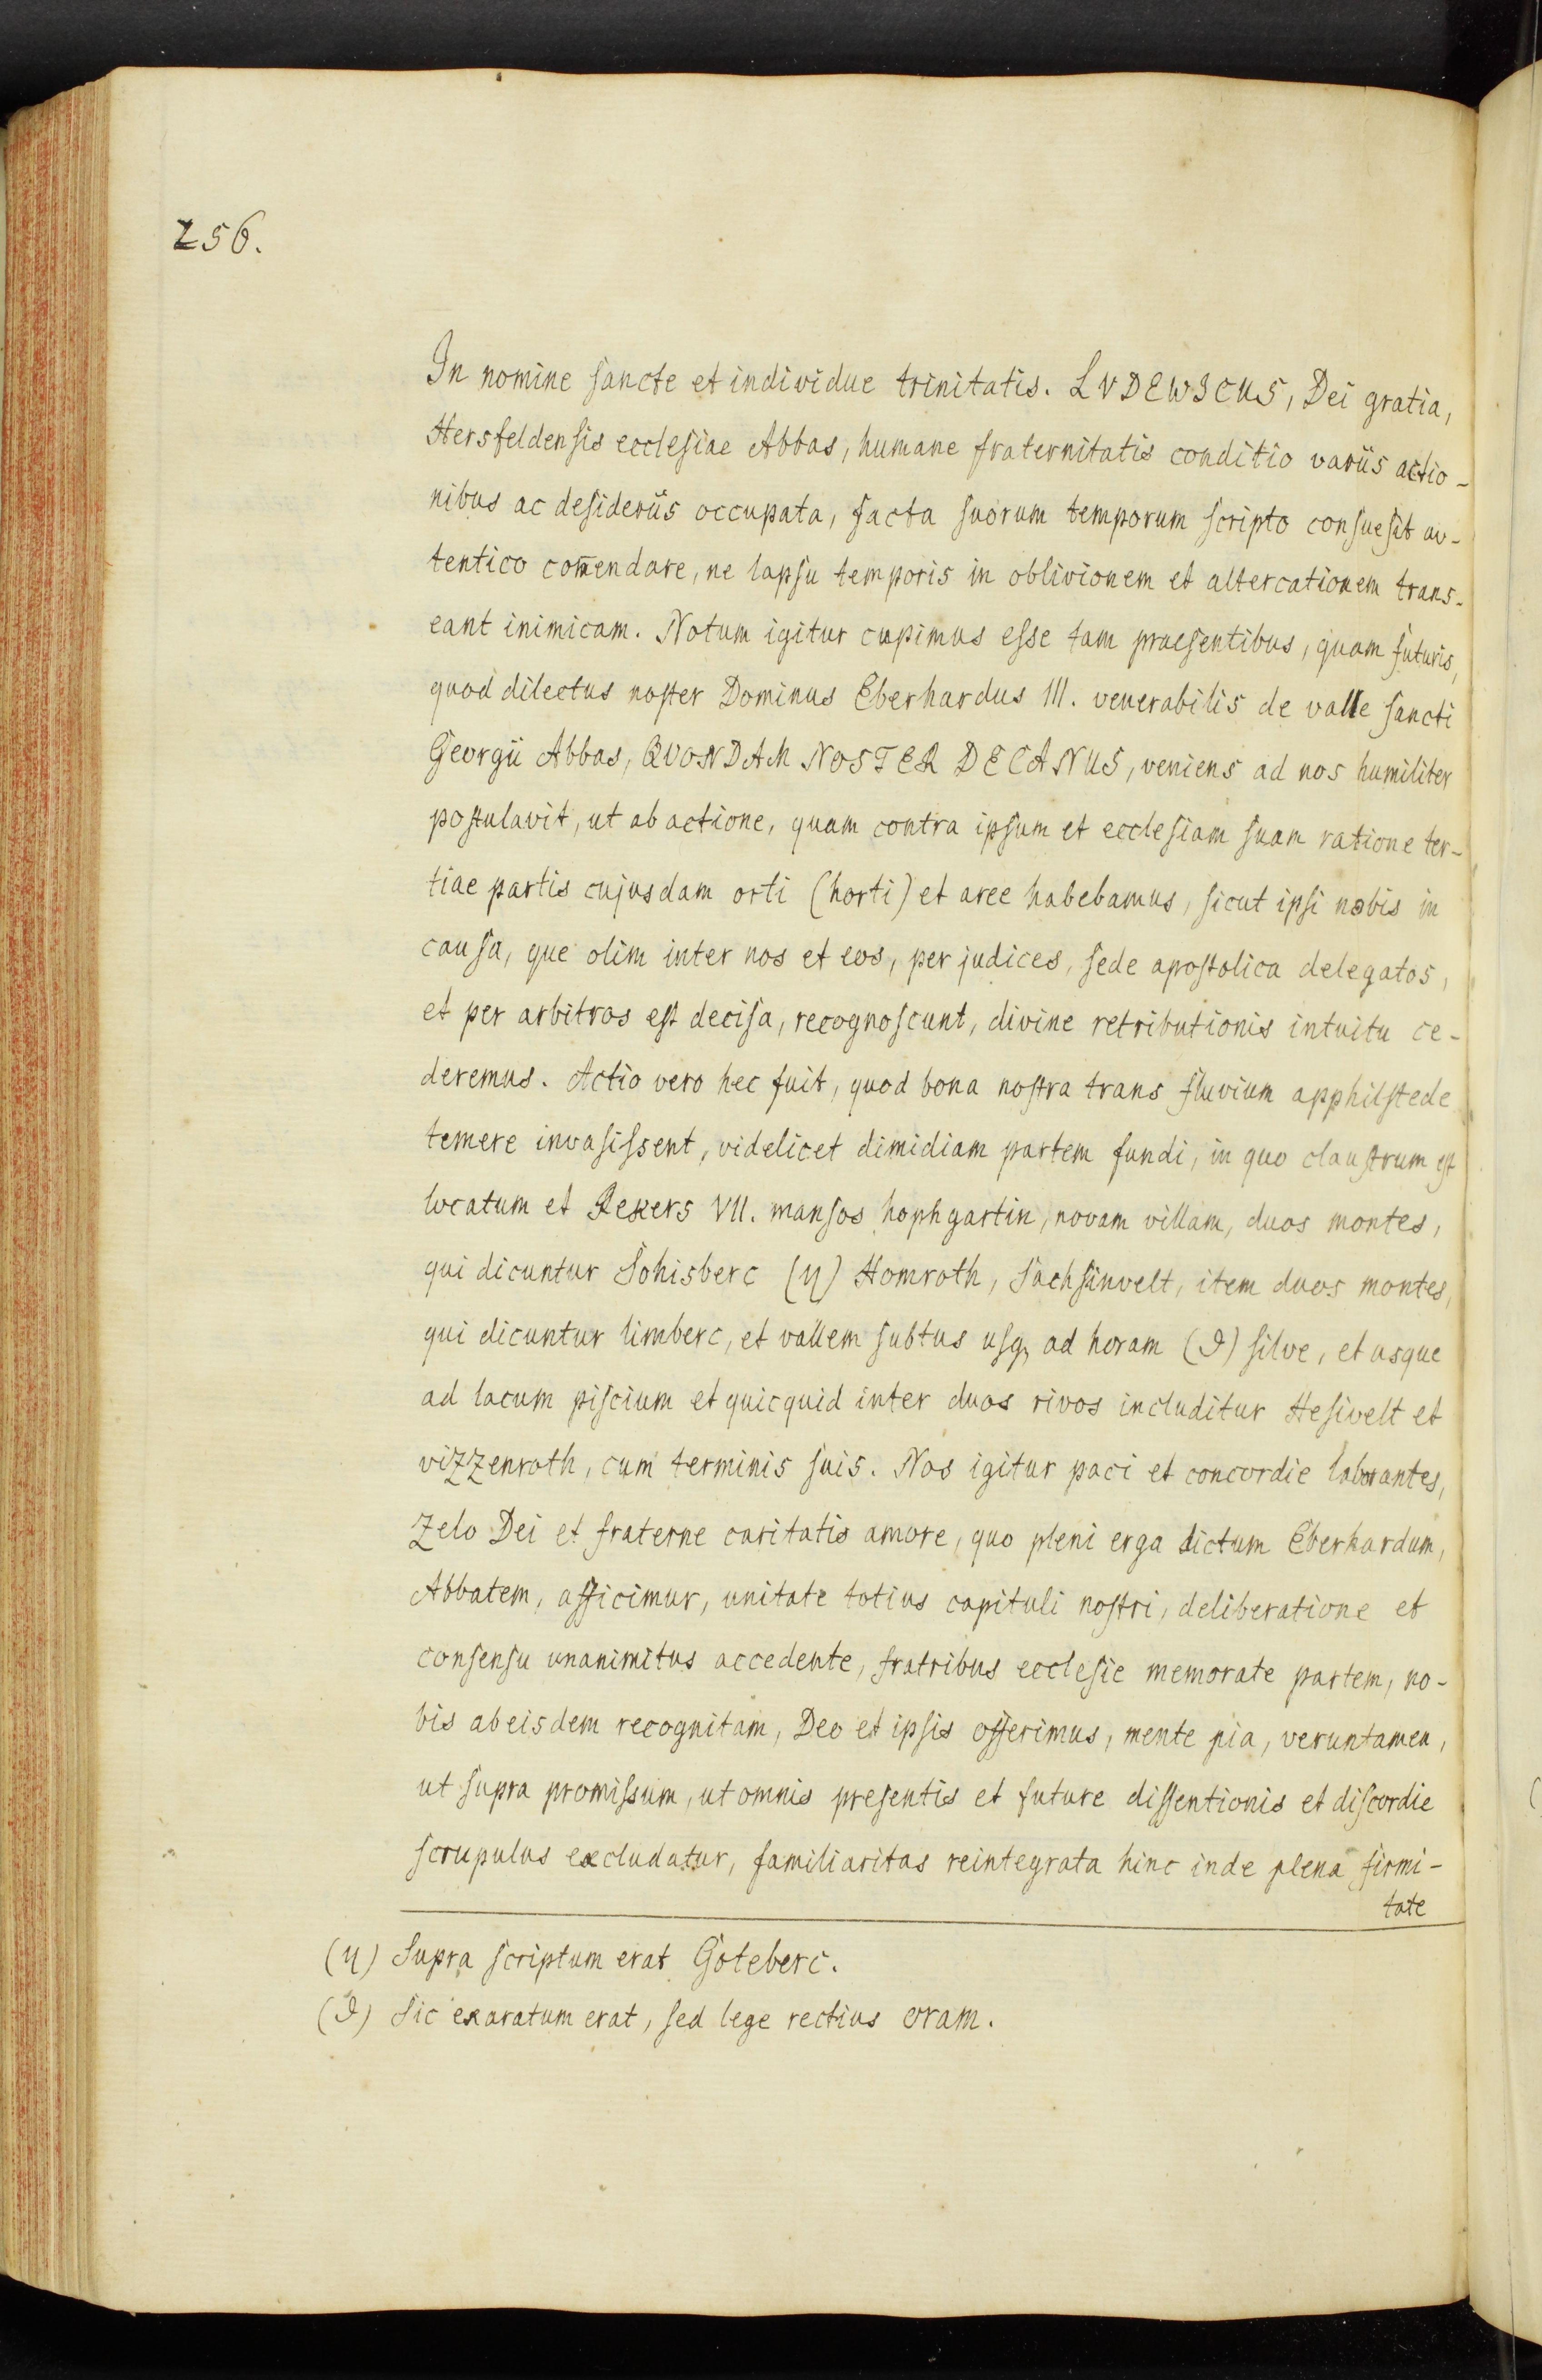 256.
In nomine sancte et individue trinitatis. LVDEWICUS, Dei gratia,
Hersfeldensis ecclesiae Abbas, humane fraternitatis conditio variis actio-
nibus ac desideriis occupata, facta suorum temporum scripto consuesit au-
tentico com̄endare, ne lapsu temporis in oblivionem et altercationem trans-
eant inimicam. Notum igitur cupimus esse tam praesentibus, quam futuris,
quod dilectus noster Dominus Eberhardus III. venerabilis de valle sancti
Georgii Abbas, QVONDAM NOSTER DECANUS, veniens ad nos humiliter
postulavit, ut ab actione, quam contra ipsum et ecclesiam suam ratione ter-
tiae partis cujusdam orti (horti) et aree habebamus, sicut ipsi nobis in
causa, que olim inter nos et eos, per judices, sede apostolica delegatos,
et per arbitros est decisa, recognoscunt, divine retributionis intuitu ce-
deremus. Actio vero hec fuit, quod bona nostra trans fluvium apphilstede
temere invasissent, videlicet dimidiam partem fundi, in quo claustrum est
locatum et Rekers VII. mansos hophgartin, novam villam, duos montes,
qui dicuntur Sohisberc (η) Homroth, Sachsinvelt, item duos montes,
qui dicuntur limberc, et vallem subtus usq, ad horam (ϑ) silve, et usque
ad lacum piscium et quicquid inter duos rivos includitur Hesivelt et
vizzenroth, cum terminis suis. Nos igitur paci et concordie laborantes,
Zelo Dei et fraterne caritatis amore, quo pleni erga dictum Eberhardum,
Abbatem, afficimur, unitate totius capituli nostri, deliberatione et
consensu unanimitus accedente, fratribus ecclesie memorate partem, no-
bis ab eisdem recognitam, Deo et ipsis offerimus, mente pia, veruntamen,
ut supra promissum, ut omnis presentis et future dissentionis et discordie
scrupulus excludatur, familiaritas reintegrata hinc inde plena firmi-
tate
(η) Supra scriptum erat Goteberc.
(ϑ) Sic exaratum erat, sed lege rectius oram.